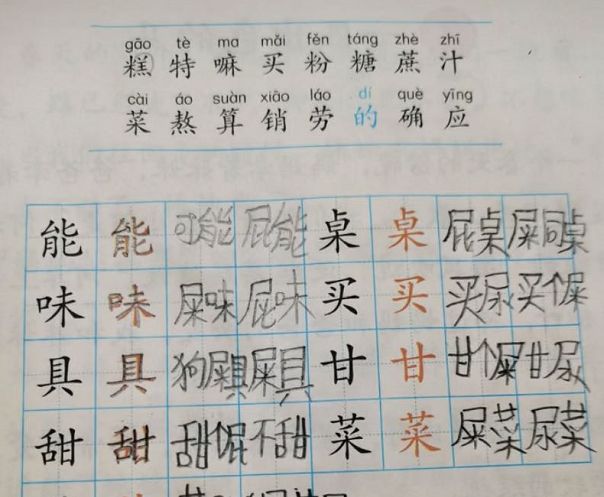 gāo tè ma mǎi fěn táng zhè zhī
糕 特 嘛 买 粉 糖 蔗 汁
cài áo suàn xiāo láo dí què yīng
菜 熬 算 销 劳 的 确 应
能 能 可能 屁能 桌 桌 屁桌 屎同桌
味 味 屎味 屁味 买 买 买尿 买个屎
具 具 狗屎具 屎具 甘 甘 甘个屎 甘尿
甜 甜 甜个屁 不甜 菜 菜 屎菜 尿菜